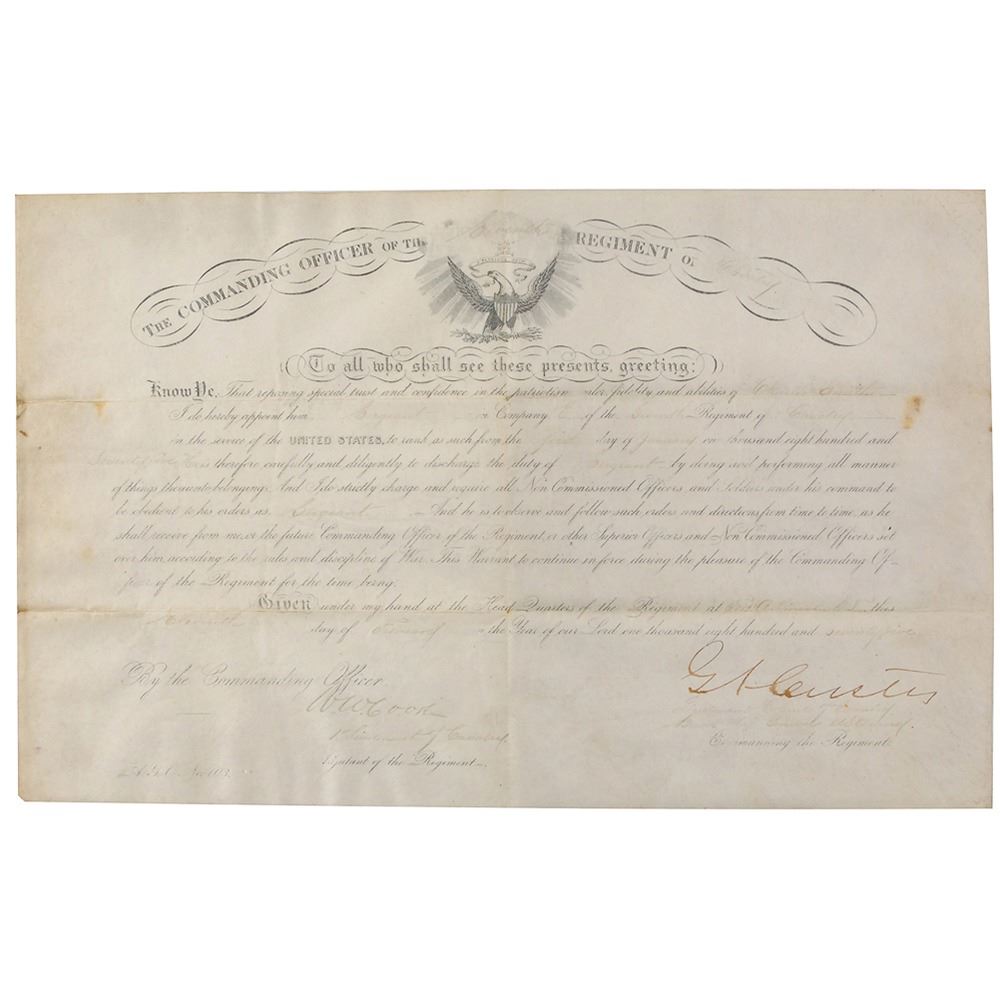 THE COMMANDING OFFICER OF THE Seventh REGIMENT OF Cavalry
To all who shall see these presents, greeting:
Know Ye, That reposing special trust and confidence in the patriotism valor, fidelity and abilities of
I do hereby appoint him Sergeant in Company of the Seventh Regiment of Cavalry
in the service of the UNITED STATES, to rank as such from the first day of January one thousand eight hundred and
Seventy five He is therefore carefully and diligently to discharge the duty of Sergeant by doing and performing all manner
of things thereunto belonging. And I do strictly charge and require all Non Commissioned Officers and Soldiers under his command to
be obedient to his orders as Sergeant And he is to observe and follow such orders and directions from time to time, as he
shall receive from me, or the future Commanding Officer of the Regiment, or other Superior Officers and Non Commissioned Officers set
over him, according to the rules and discipline of War. This Warrant to continue in force during the pleasure of the Commanding Of-
ficer of the Regiment for the time being.
Given under my hand at the Head Quarters of the Regiment at this
day of the Year of our Lord one thousand eight hundred and seventy five
By the Commanding Officer.
W W Cook
1st Lieutenant 7 Cavalry
Adjutant of the Regiment.
G A Custer
Commanding the Regiment.